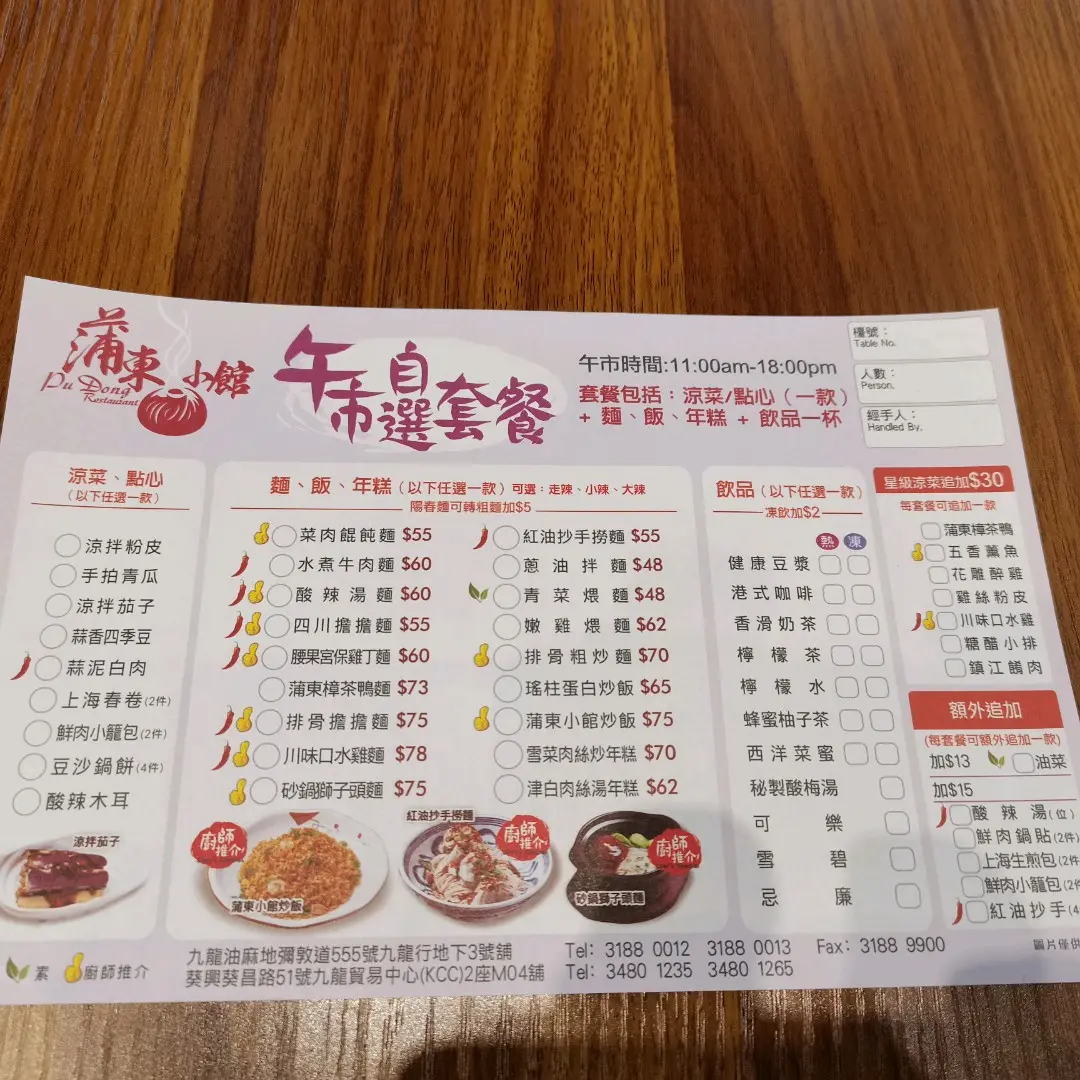 蒲東小館
Pu Dong
Restaurant
午市自選套餐
午市時間:11:00am-18:00pm
套餐包括：涼菜/點心（一款）
+ 麵、飯、年糕 + 飲品一杯
檯號：
Table No.
人數：
Person.
經手人：
Handled By.
涼菜、點心
（以下任選一款）
涼拌粉皮
手拍青瓜
涼拌茄子
蒜香四季豆
蒜泥白肉
上海春卷(2件)
鮮肉小籠包(2件)
豆沙鍋餅(4件)
酸辣木耳
涼拌茄子
麵、飯、年糕（以下任選一款）可選：走辣、小辣、大辣
陽春麵可轉粗麵加$5
菜肉餛飩麵 $55
水煮牛肉麵 $60
酸辣湯麵 $60
四川擔擔麵 $55
腰果宮保雞丁麵 $60
蒲東樟茶鴨麵 $73
排骨擔擔麵 $75
川味口水雞麵 $78
砂鍋獅子頭麵 $75
紅油抄手撈麵 $55
蔥油拌麵 $48
青菜煨麵 $48
嫩雞煨麵 $62
排骨粗炒麵 $70
瑤柱蛋白炒飯 $65
蒲東小館炒飯 $75
雪菜肉絲炒年糕 $70
津白肉絲湯年糕 $62
廚師推介
蒲東小館炒飯
紅油抄手撈麵
廚師推介
廚師推介
砂鍋獅子頭麵
飲品（以下任選一款）
凍飲加$2
熱 凍
健康豆漿
港式咖啡
香滑奶茶
檸檬茶
檸檬水
蜂蜜柚子茶
西洋菜蜜
秘製酸梅湯
可樂
雪碧
忌廉
星級涼菜追加$30
每套餐可追加一款
蒲東樟茶鴨
五香薰魚
花雕醉雞
雞絲粉皮
川味口水雞
糖醋小排
鎮江餚肉
額外追加
(每套餐可額外追加一款)
加$13 油菜
加$15
酸辣湯(位)
鮮肉鍋貼(2件)
上海生煎包(2件
鮮肉小籠包(2件
紅油抄手(4
素 廚師推介
九龍油麻地彌敦道555號九龍行地下3號舖
葵興葵昌路51號九龍貿易中心(KCC)2座M04舖
Tel: 3188 0012 3188 0013 Fax: 3188 9900
Tel: 3480 1235 3480 1265
圖片僅供